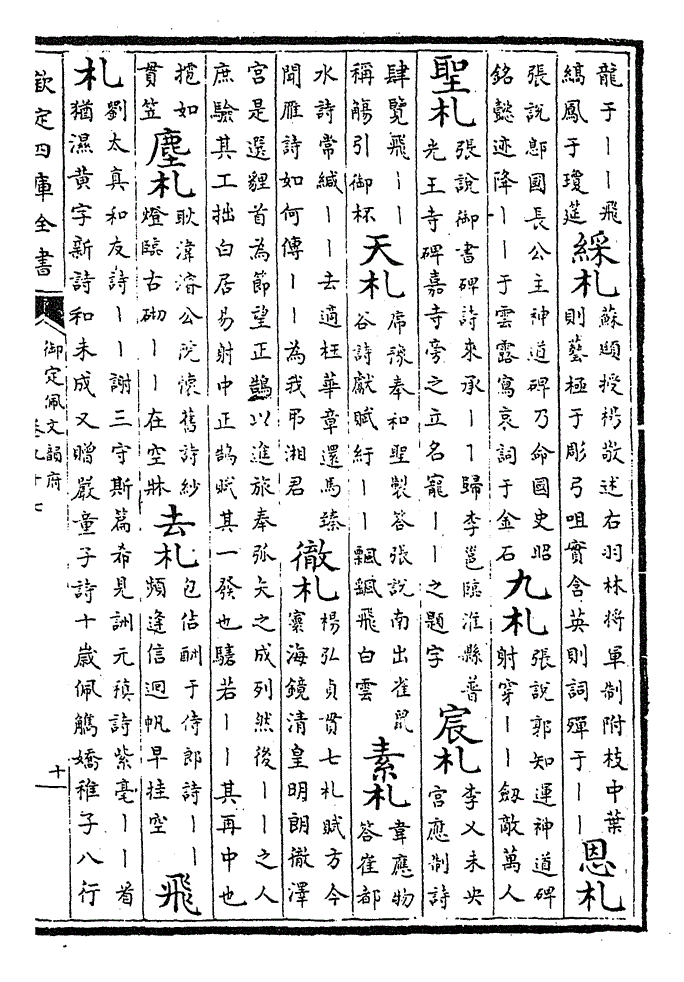 龍于丨丨飛
縞鳳于瓊筵
綵札
蘇頲授楊敬述右羽林將軍制附枝中葉
則藝極于彫弓咀實含英則詞殫于丨丨
恩札
張説鄎國長公主神道碑乃命國史昭
銘懿迹降丨丨于雲露寫哀詞于金石
九札
張説郭知運神道碑
射穿丨丨劒敵萬人
聖札
張説御書碑詩來承丨丨歸李邕臨淮縣普
光王寺碑嘉寺旁之立名寵丨丨之題字
宸札
李乂未央
宫應制詩
肆覽飛丨丨
稱觴引御杯
天札
席豫奉和聖製答張説南出雀鼠
谷詩獻賦紆丨丨飄颻飛白雲
素札
韋應物
答崔都
水詩常緘丨丨去適枉華章還馬臻
間雁詩如何傳丨丨為我弔湘君
徹札
楊弘貞貫七札賦方今
寰海鏡清皇明朗徹澤
宫是選貍首為節望正鵠以進旅奉弧矢之成列然後丨丨之人
庶驗其工拙白居易射中正鵠賦其一發也騞若丨丨其再中也
摠如
貫笠
塵札
耿湋濬公院懷舊詩紗
燈臨古砌丨丨在空牀
去札
包佶酬于侍郎詩丨丨
頻逢信迴帆早挂空
飛
札
劉太真和友詩丨丨謝三守斯篇希見詶元稹詩紫毫丨丨首
猶濕黄字新詩和未成又贈嚴童子詩十歲佩觹嬌稚子八行
欽定四庫全書
御定佩文韻府
卷九十七
十